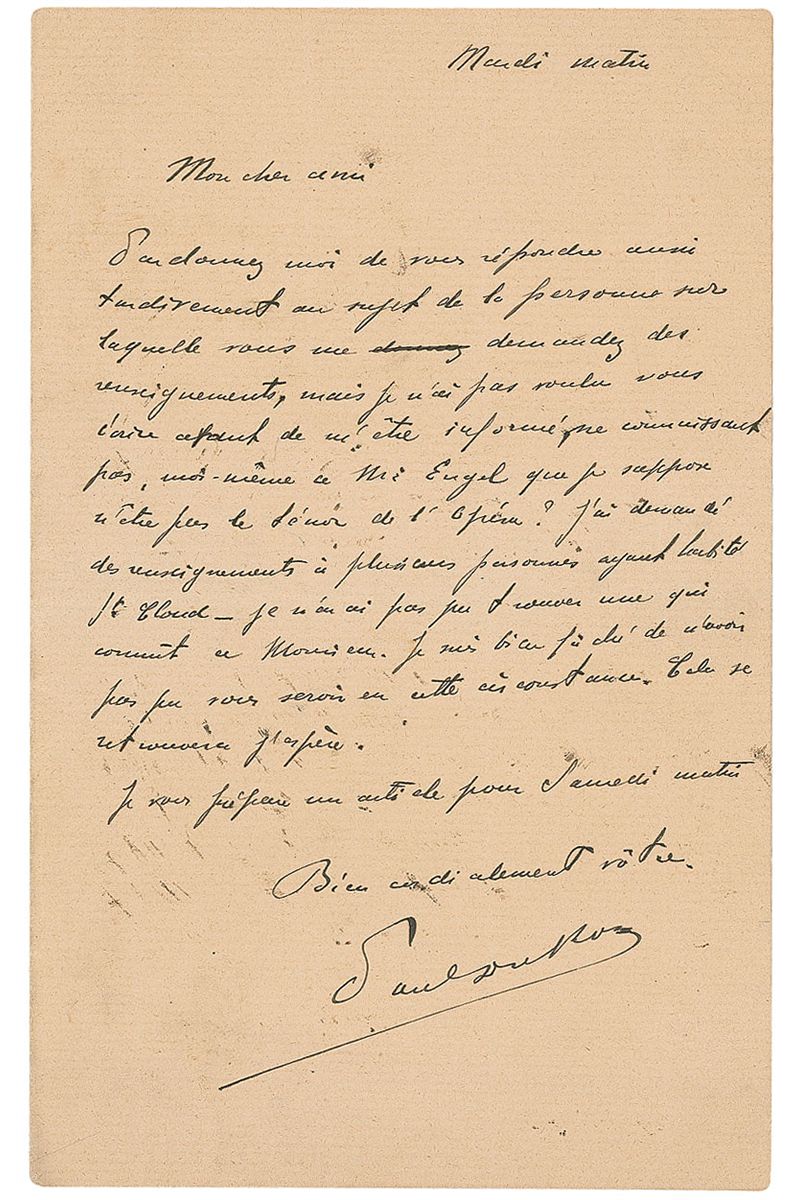 Mardi matin
Mon cher ami
Pardonnez moi de vous répondre aussi
tardivement au sujet de la personne sur
laquelle vous me donnez demandez des
renseignements, mais je n'ai pas voulu vous
écrire avant de m'être informé, ne connaissant
pas, moi-même ce Mr Engel que je suppose
n'être pas le ténor de l'Opéra? J'ai demandé
des renseignements à plusieurs personnes ayant habité
St Cloud – je n'en ai pas pu trouver une qui
connût ce Monsieur. Je suis bien fâché de n'avoir
pas pu vous servir en cette circonstance. Cela se
retrouvera j'espère.
Je vous prépare un article pour Samedi matin
Bien cordialement vôtre.